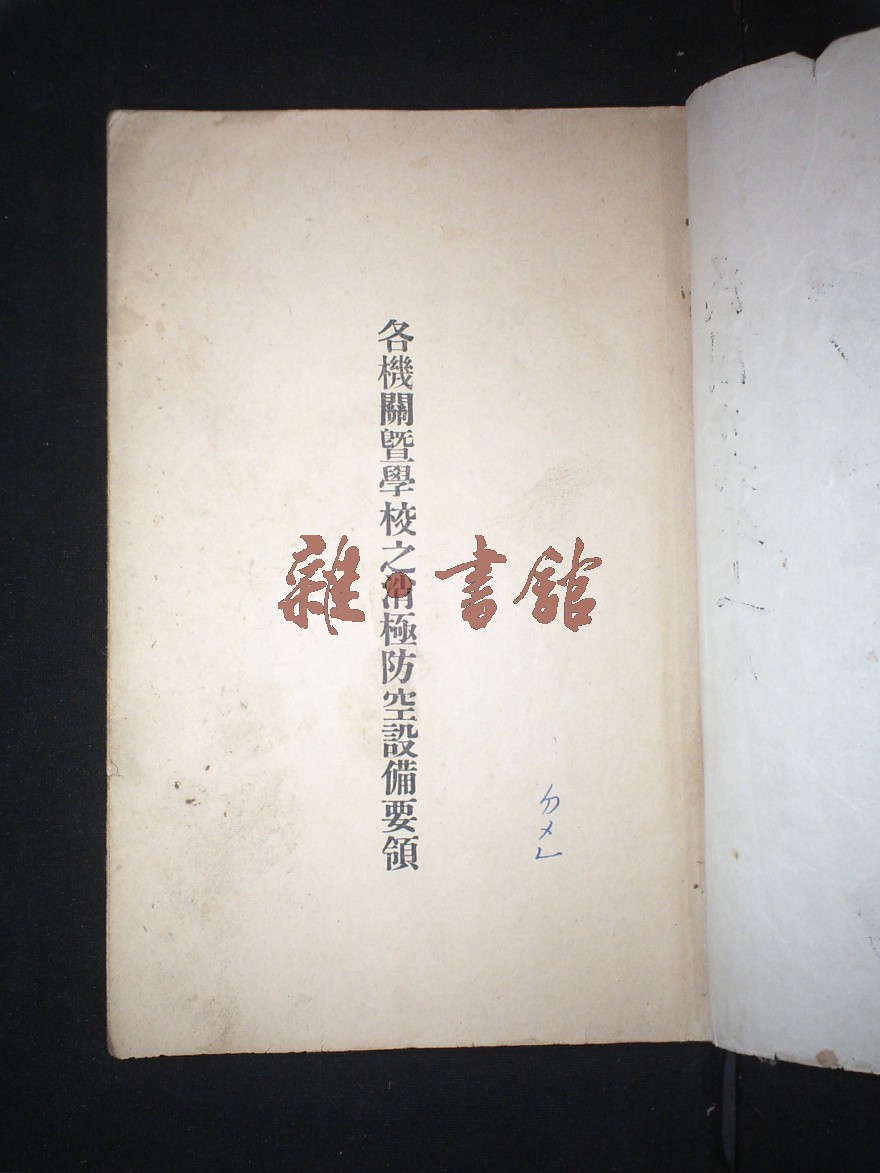 各機關暨學校之消極防空設備要領
雜·書館